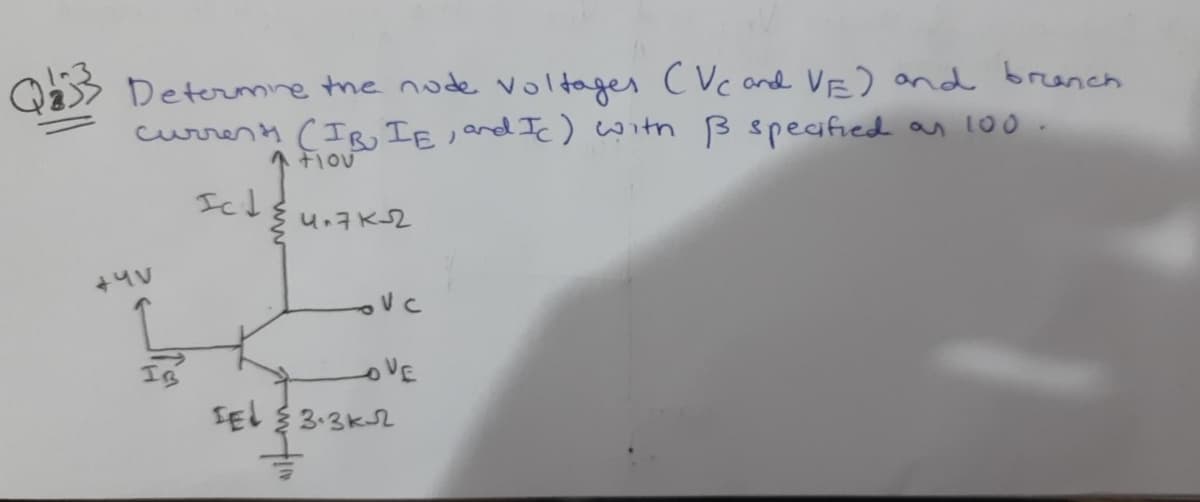 Determine the node voltages (Vc and VE) and branch
currents (IB, IE, and Ic) with β specified as 100.
+10V
Ic↓
4.7KΩ
+4V
VC
IB
VE
IE↓ 3.3KΩ